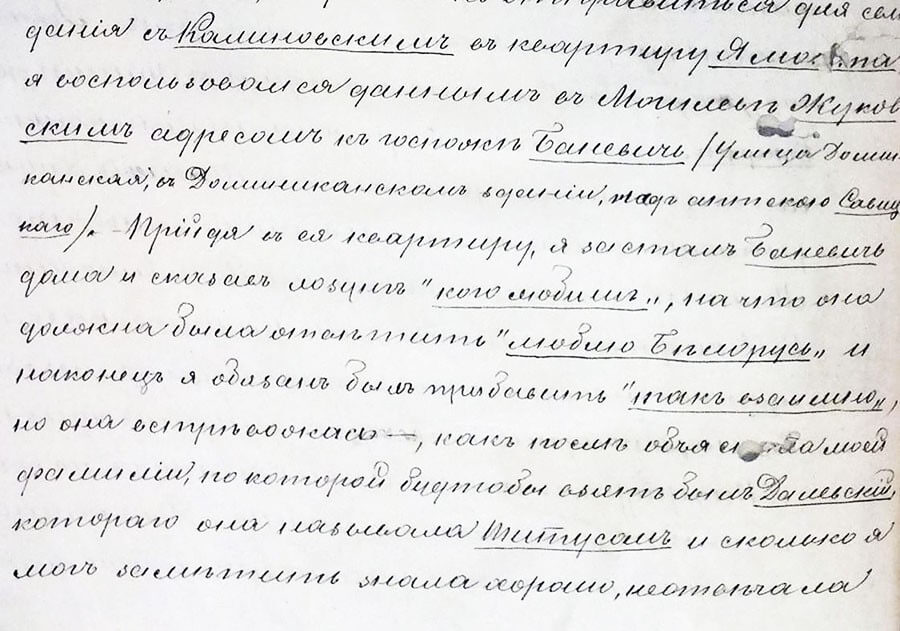 для
данія съ Калиновскимъ въ квартиру Ямонта
я воспользовался даннымъ въ Могилевѣ Жуков
скимъ адресомъ къ госпожѣ Баневичь /улица Домини
канская, въ Доминиканскомъ зданіи, надъ аптекою Савиц
каго/. Прійдя въ ея квартиру, я засталъ Баневичь
дома и сказавъ лозунгъ "кого любишь„, на что она
должна была отвѣтить "люблю Бѣлорусь„ и
наконецъ я обязанъ былъ прибавить "такъ взаимно„,
но она встревожась —, какъ послѣ объяснила моей
фамиліи, по которой будтобы взятъ былъ Далевскій,
котораго она называла Титусомъ и сколько я
могъ замѣтить знала хорошо, неотвѣчала